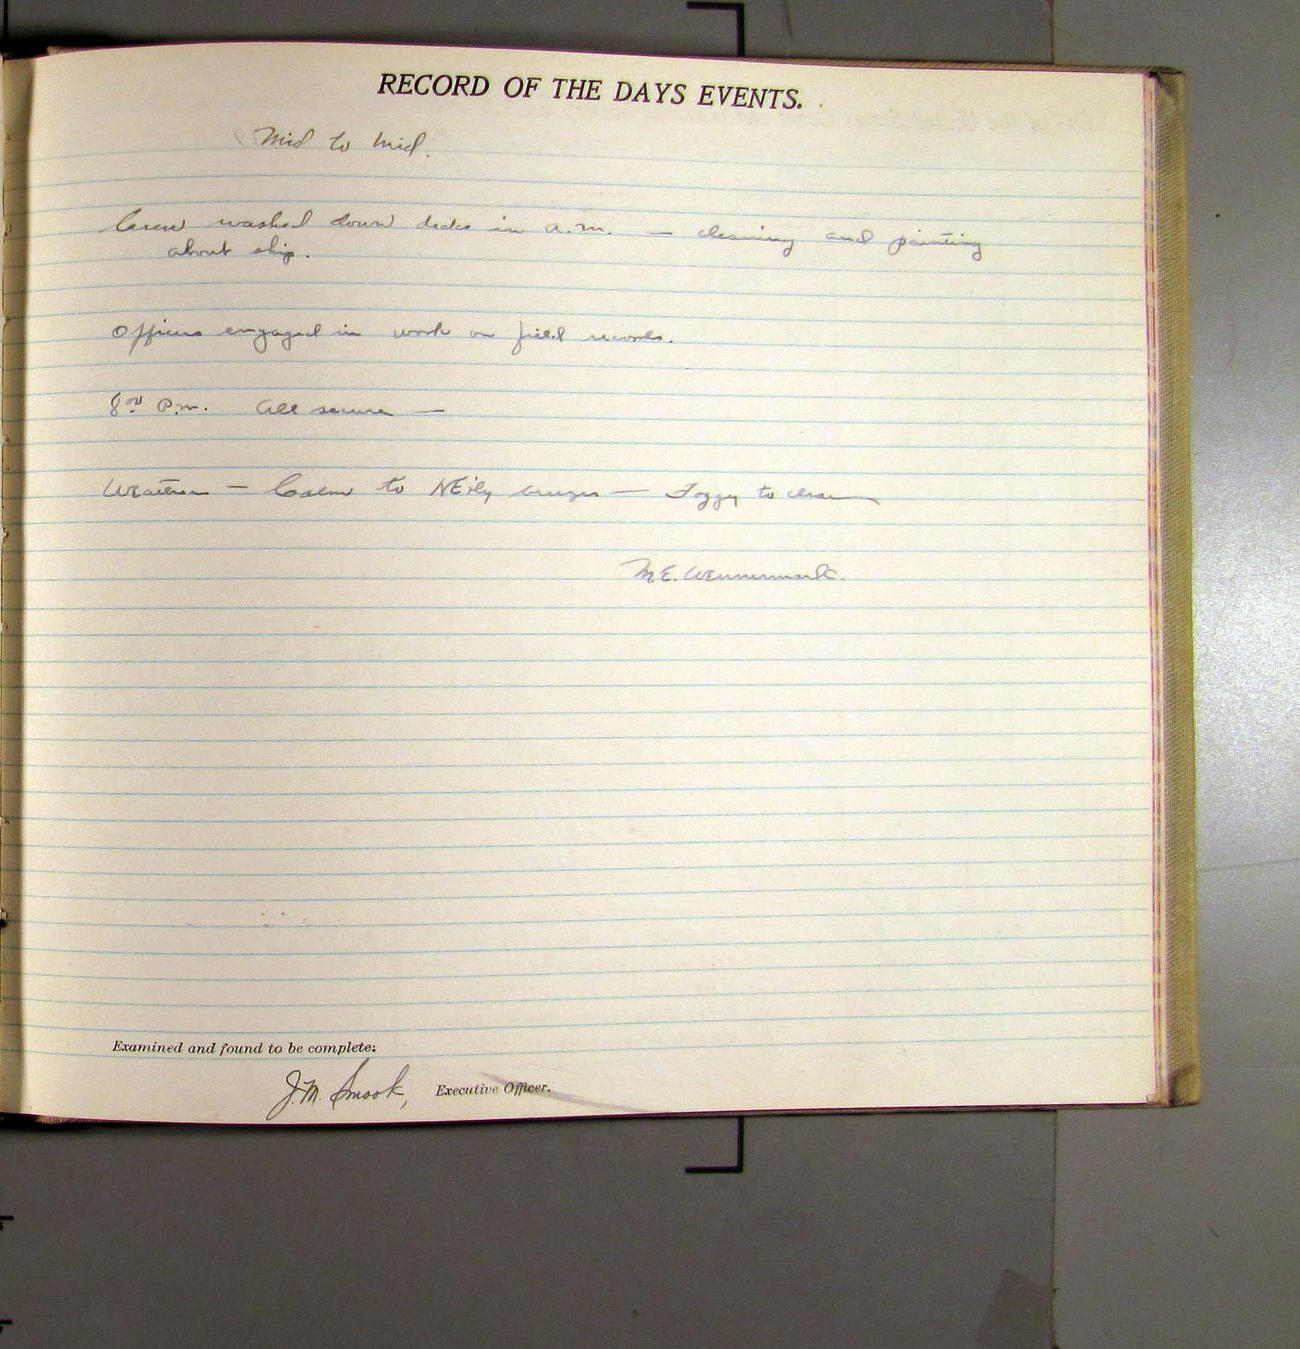 RECORD OF THE DAYS EVENTS.
Mid to Mid.
Crew washed down decks in a.m. — cleaning and painting
about ship.
Officers engaged in work on field records.
8⁰⁰ P.m. All secure —
Weather — Calm to NE'ly breezes — Foggy to clear
M.E. Wennermark.
Examined and found to be complete:
J.M. Smook, Executive Officer.